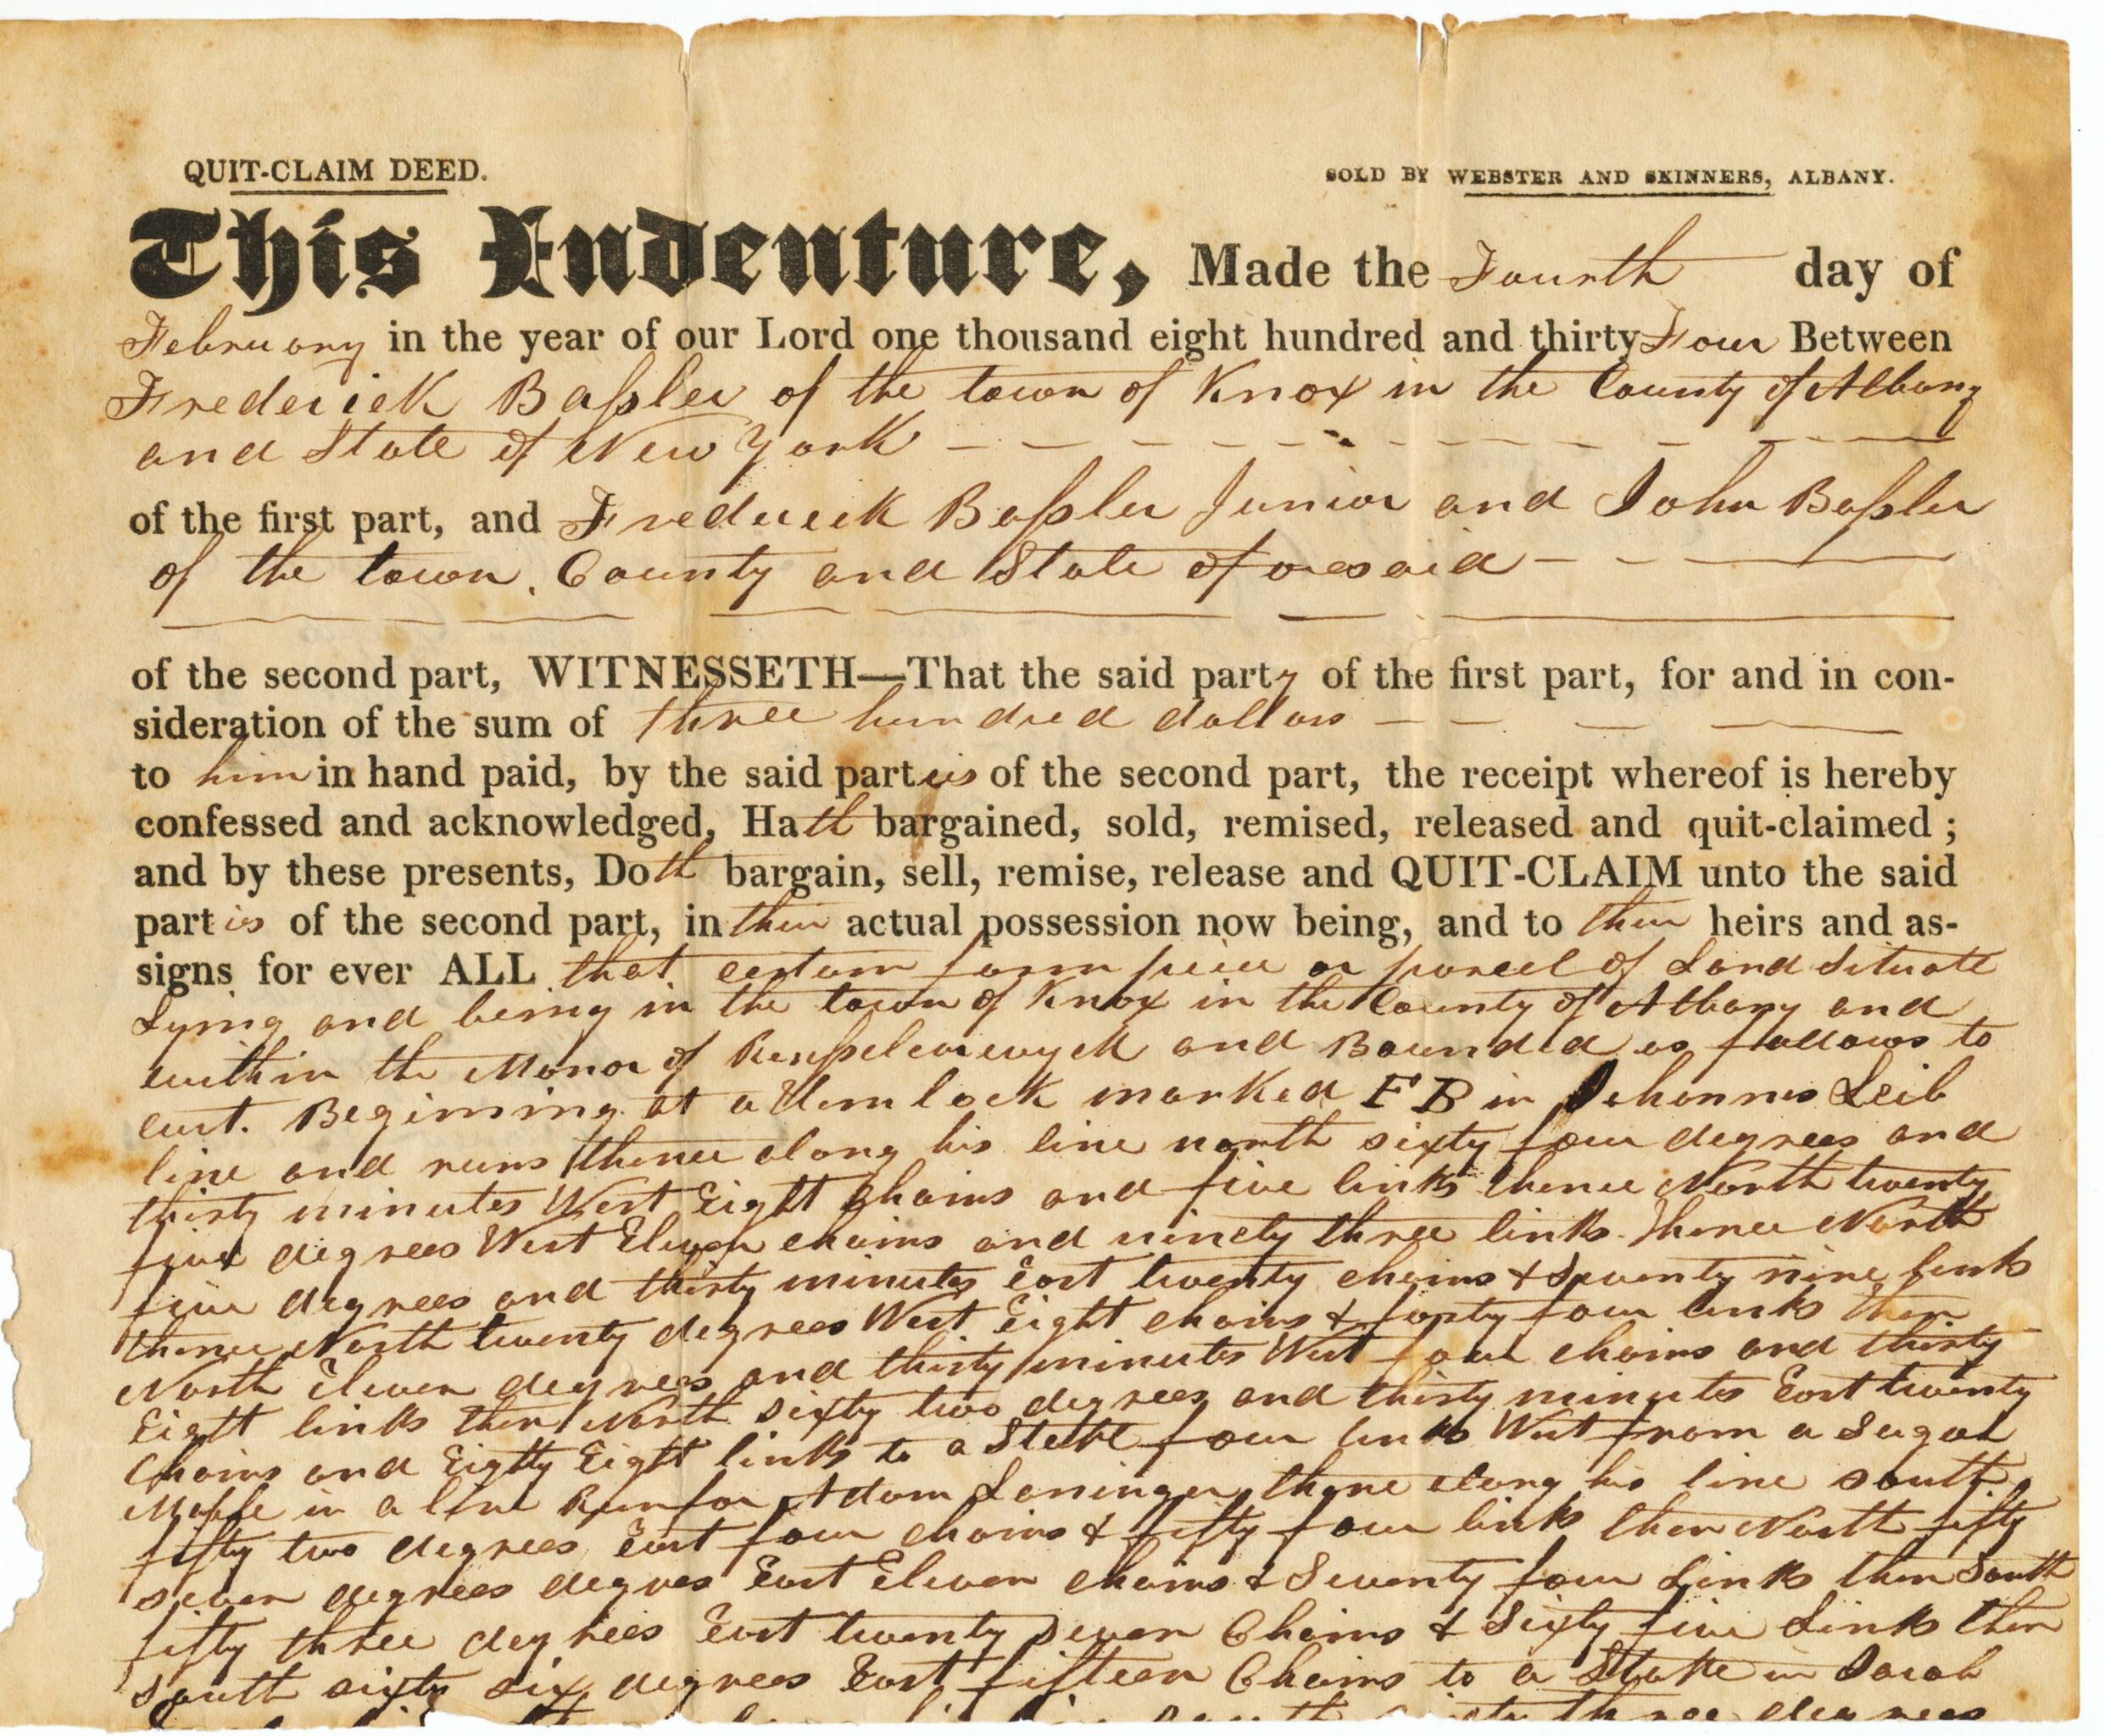 QUIT-CLAIM DEED.
SOLD BY WEBSTER AND SKINNERS, ALBANY.
This Indenture, Made the Fourth day of
February in the year of our Lord one thousand eight hundred and thirty Four Between
Frederick Baſsler of the town of Knox in the County of Albany
and State of New York
of the first part, and Frederick Baſsler Junior and John Baſsler
of the town, County and State aforesaid
of the second part, WITNESSETH—That the said party of the first part, for and in con-
sideration of the sum of three hundred dollars
to him in hand paid, by the said parties of the second part, the receipt whereof is hereby
confessed and acknowledged, Hath bargained, sold, remised, released and quit-claimed ;
and by these presents, Doth bargain, sell, remise, release and QUIT-CLAIM unto the said
parties of the second part, in their actual possession now being, and to their heirs and as-
signs for ever ALL that certain farm piece or parcel of Land Situate
Lying and being in the town of Knox in the County of Albany and
within the Manor of and Bounded as follows to
Beginning at a Hemlock marked FB in Johannes Leib
line and runs thence along his line north sixty four degrees and
thirty minutes West Eight chains and five links thence North twenty
five degrees West Eleven chains and ninety three links. Thence North
five degrees and thirty minutes East twenty chains & Seventy nine links
thence North twenty degrees West Eight chains & forty four links then
North Eleven degrees and thirty minutes West four chains and thirty
Eight links then North sixty two degrees and thirty minutes East twenty
Chains and Eighty Eight links to a Stake four links West from a Sugar
Maple in a line Run for Adam along his line south
fifty two degrees East four chains & fifty four links then North fifty
seven degrees degrees East Eleven chains & Seventy four Links then South
fifty three degrees East twenty seven Chains & Sixty five Links then
South sixty six degrees East fifteen Chains to a Stake in Jacob
three degrees